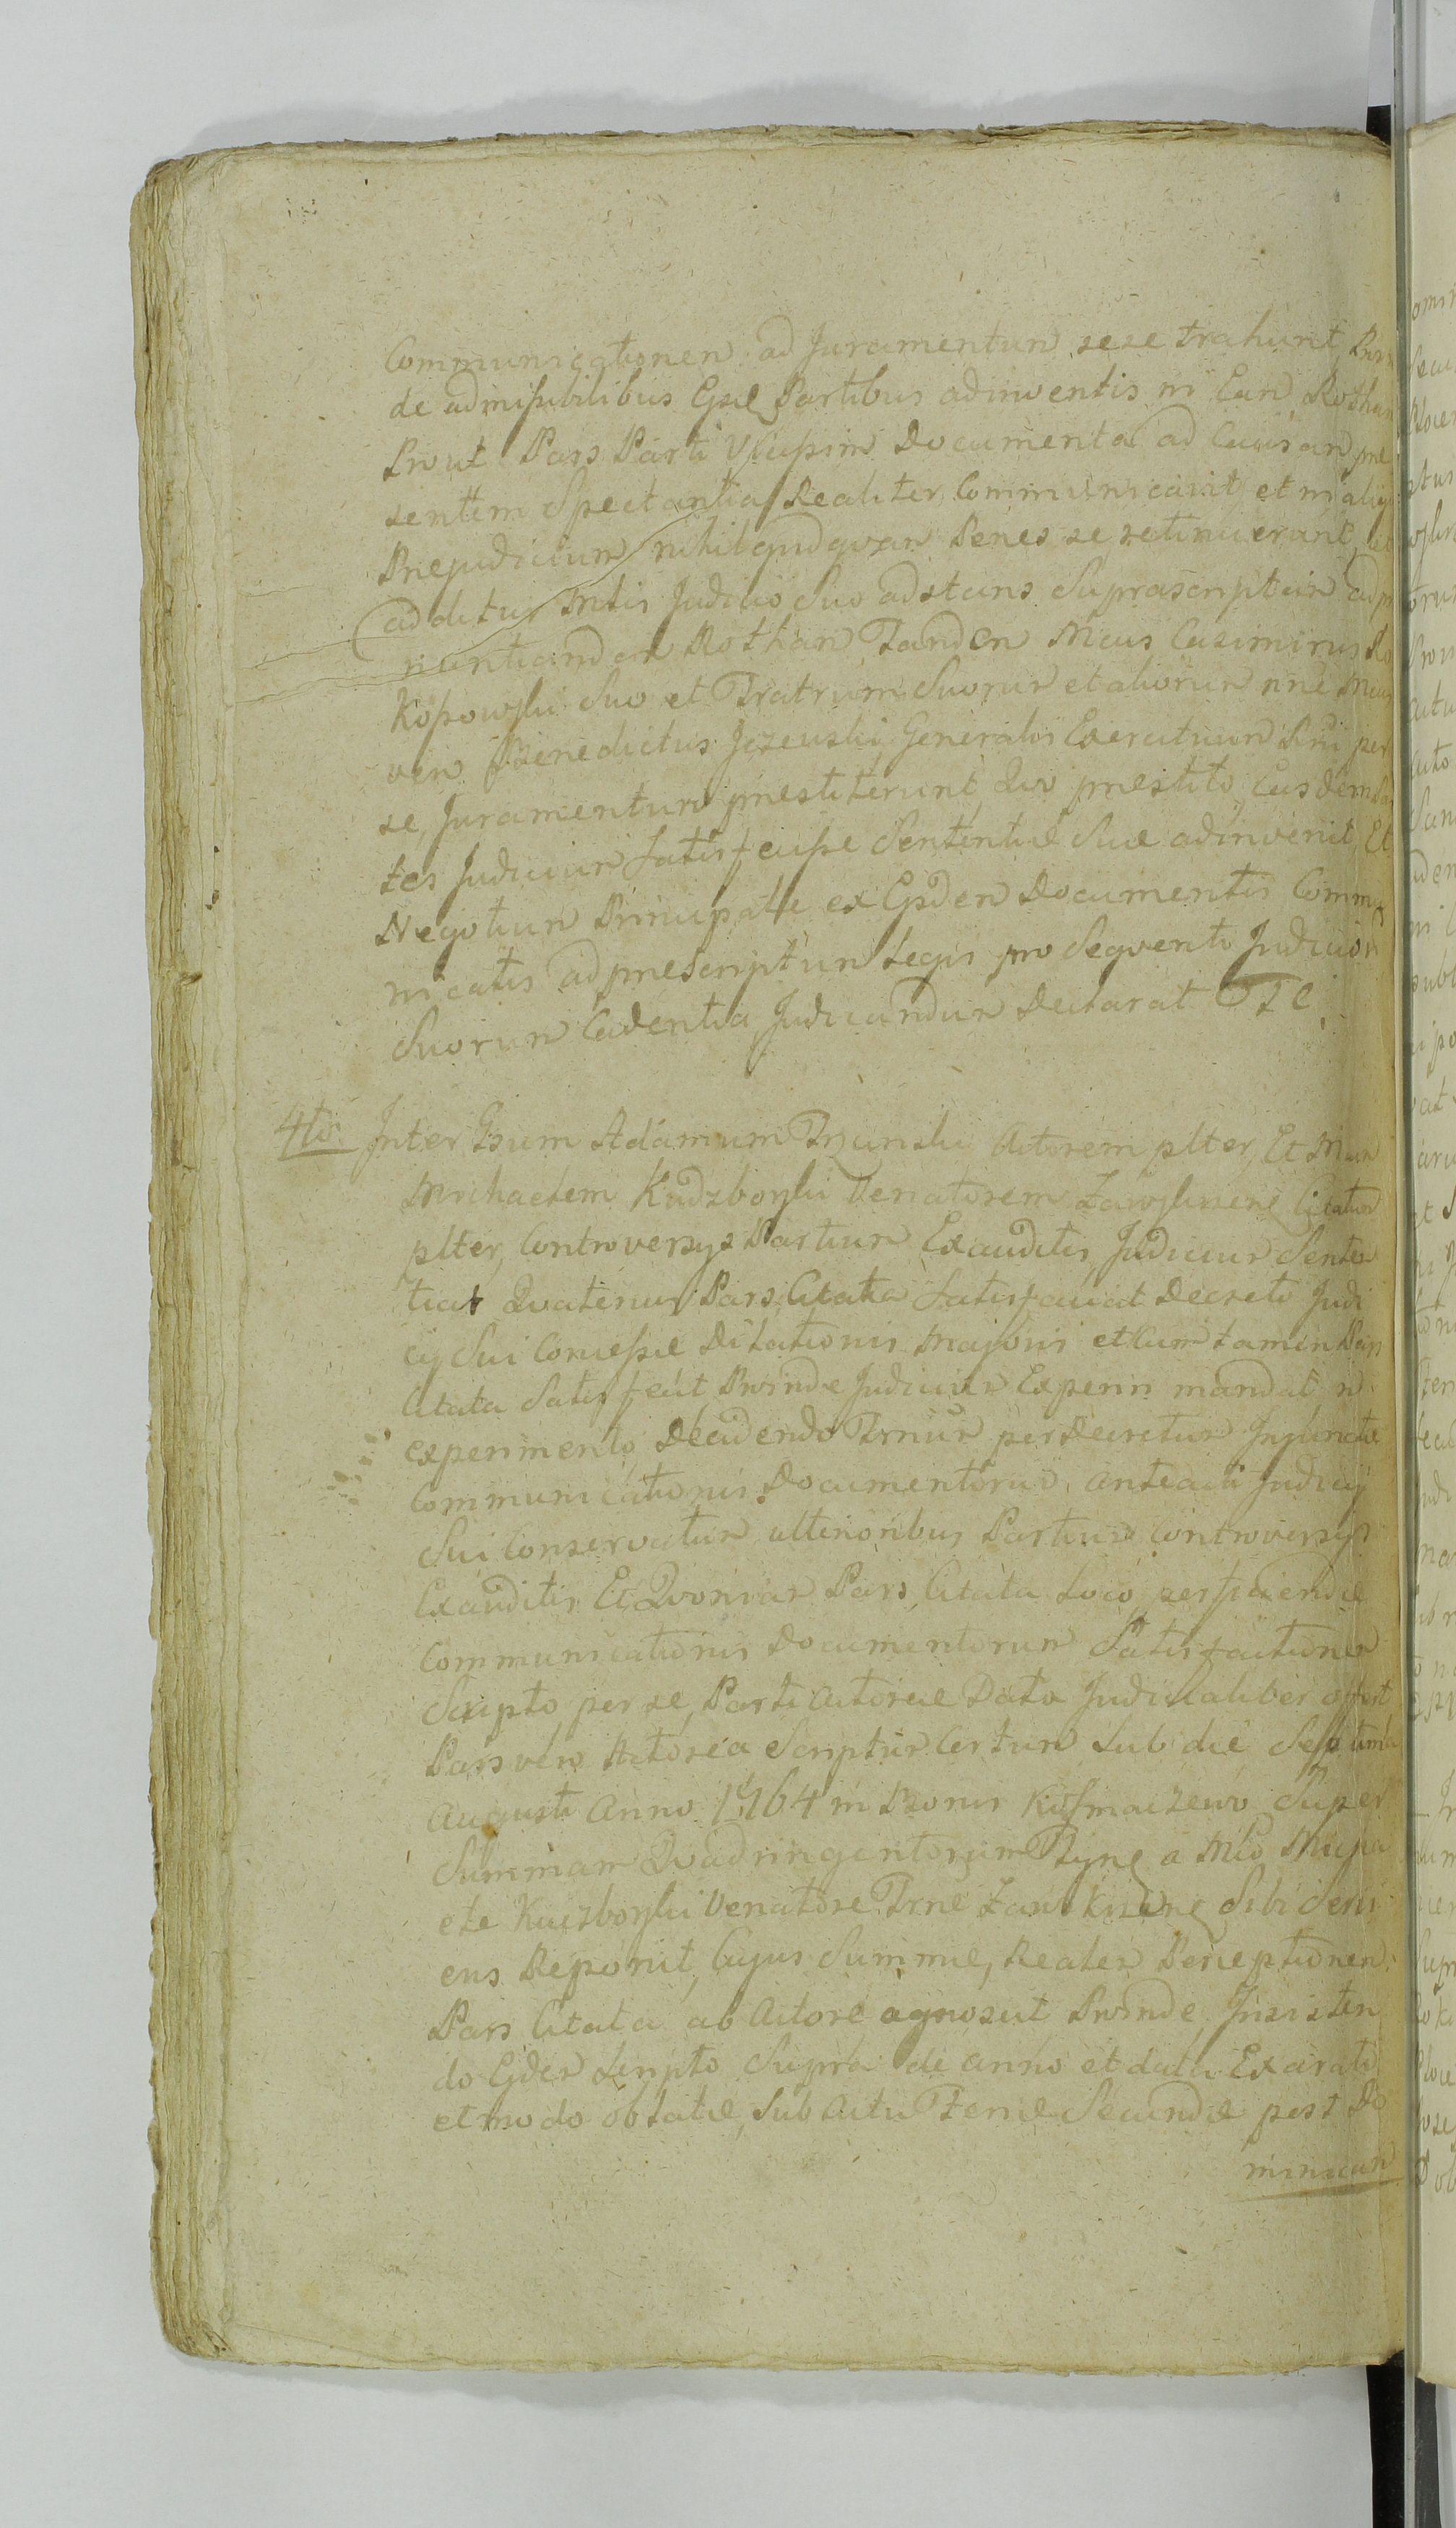 Communicationem ad Juramentum sese trahunt
de admissibilibus Gsæ Partibus adinventis in Eam Rotham
Prout Pars Parti Vicissim Documenta ad Causam præ
sentem Spectantia Realiter Communicavit et in aliqu
Prejudicium nihil quidquam Penes se retinuerant
additur Mtis Judicio Suo adstans Suprascriptam ad
nuntiandam Rotham Tandem Mcus Casimirus Ro
kossowski Suo et Fratrum Suorum et aliorum nne Mcus
vero Benedictus Jezewski Generalis Exercituum
se, Juramentum præstiterunt, Quo præstito, Easdem Par
tes Judicium Satisfecisse Sententiæ Suæ adinvenit Et
Negotium Principale ex Gsdem Documentis Commu
nicatis ad præscriptum Legis pro Sequenti Judicior
Suorum Cadentia Judicandum Declarat
4to Inter Gsum Adamum Actorem plter, Et Mcum
Michaelem Kuczborski Venatorem Citatum
plter, Controversys Partium Exauditis, Judicium Senten
tiat Quatenus Pars Citata Satisfaciat Decreto Judi
cij Sui Concessæ Dilationis Majoris et Cum tamen Pars
Citata Satisfecit Proinde Judicium Experiri mandat, in
experimento Decidendo Trnum per Decretum Injunctæ
Communicationis Documentorum, anteacti Judicij
Sui Conservatum ulterioribus Partium Controversys
Exauditis, Et Quoniam Pars Citata Loco perficiendæ
Communicationis Documentorum Satisfactionem
Scripto per se, Parti Actoreæ Data Judicialiter offert
Pars vero Actorea Scriptum Certum Sub die Septima
Augusti Anno 1764 in Bonis Super
Summam Quadringentorum Tynf a Mco Micha
ele Kuczborski Venatore Trne Sibi Servi
ens Reponit, Cujus Summæ, Realem Perceptionem
Pars Citata ab Actore agnoscit Proinde, Insisten
do Gsdem Scripto Supra de anno et data Exarato
et modo oblatæ, Sub Actu Feriæ Secundæ post Do
minicam